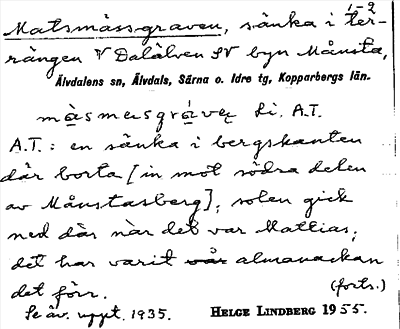 1-2
Matsmässgraven, sänka i ter-
rängen V Dalälven SV byn Månsta,
Älvdalens sn, Älvdals, Särna o. Idre tg, Kopparbergs län.
Li. A.T.
A.T.: en sänka i bergskanten
där borta [in mot södra delen
av Månstasberg]; solen gick
ned där när det var Mattias;
det har varit vår almanackan
det förr. (forts.)
Se äv. uppt. 1935. HELGE LINDBERG 1955.